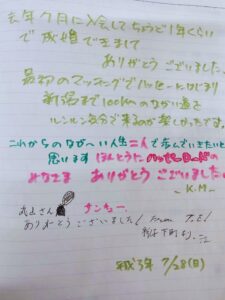 去年7月に入会してちょうど1年くらい
で成婚できまして
ありがとうございました。
最初のマッチングでハッピーになり
新潟まで100kmのながい道を
ルンルン気分で来るのが楽しかったです。
これからのなが〜い人生二人で歩んでいきたいと
思います ほんとうにハッピーロードの
みなさま ありがとうございました
～K.M～
さん サンキュー
ありがとうございました! From T.E!
平成3年 7/28(日)